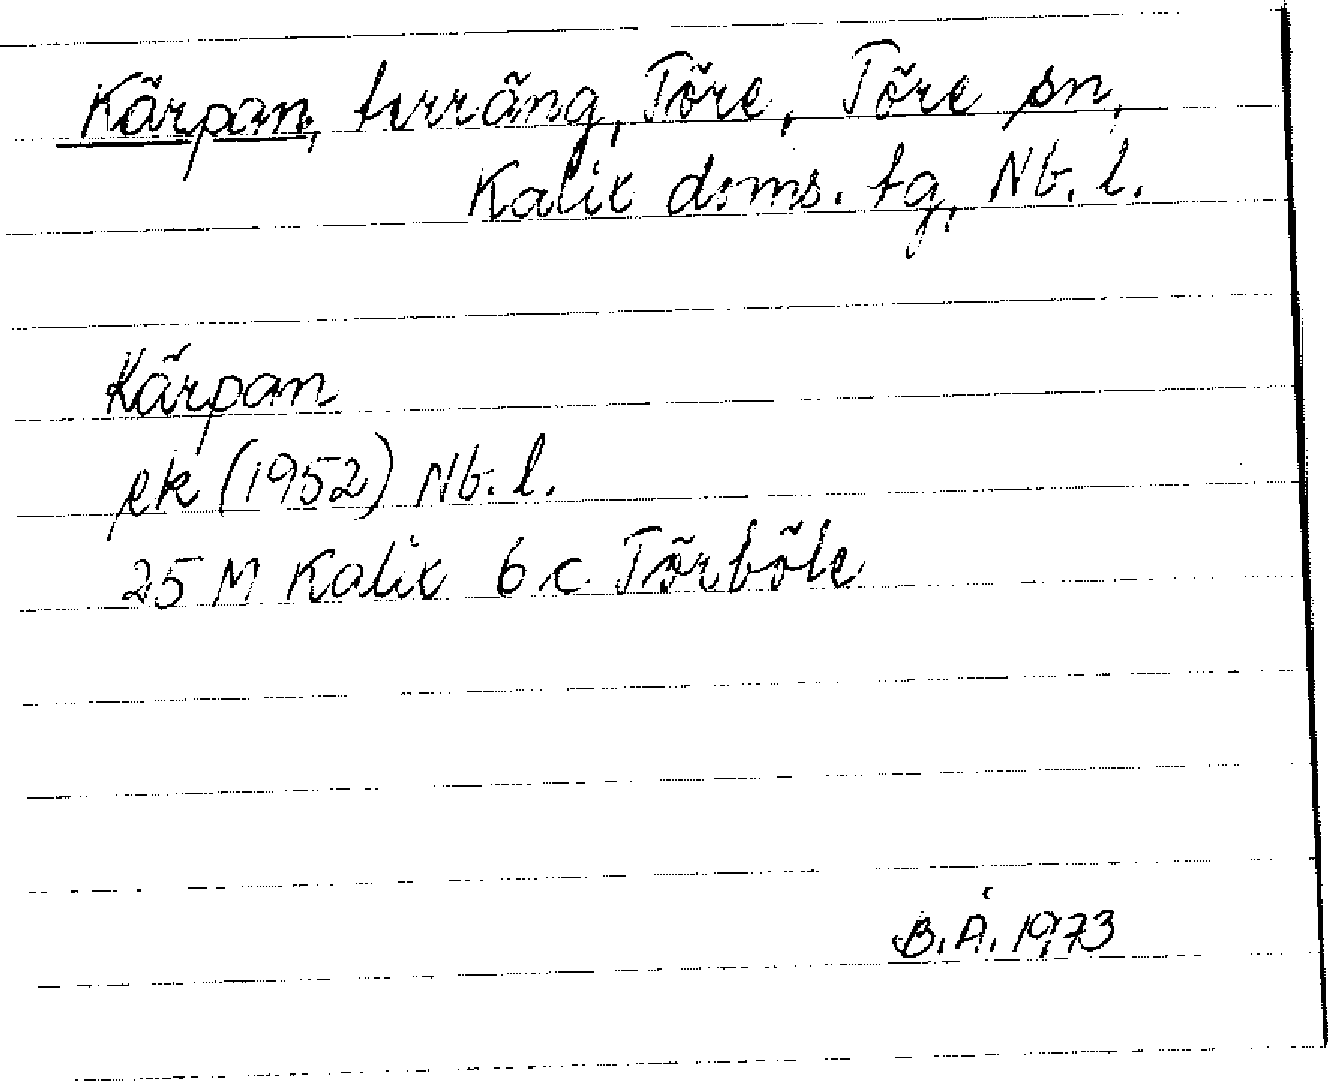 Kärpan, terräng, Töre, Töre sn,
Kalix doms. tg, Nb. l.
Kärpan
ek (1952) Nb. l.
25 M Kalix 6 c Törböle
B. Å. 1973